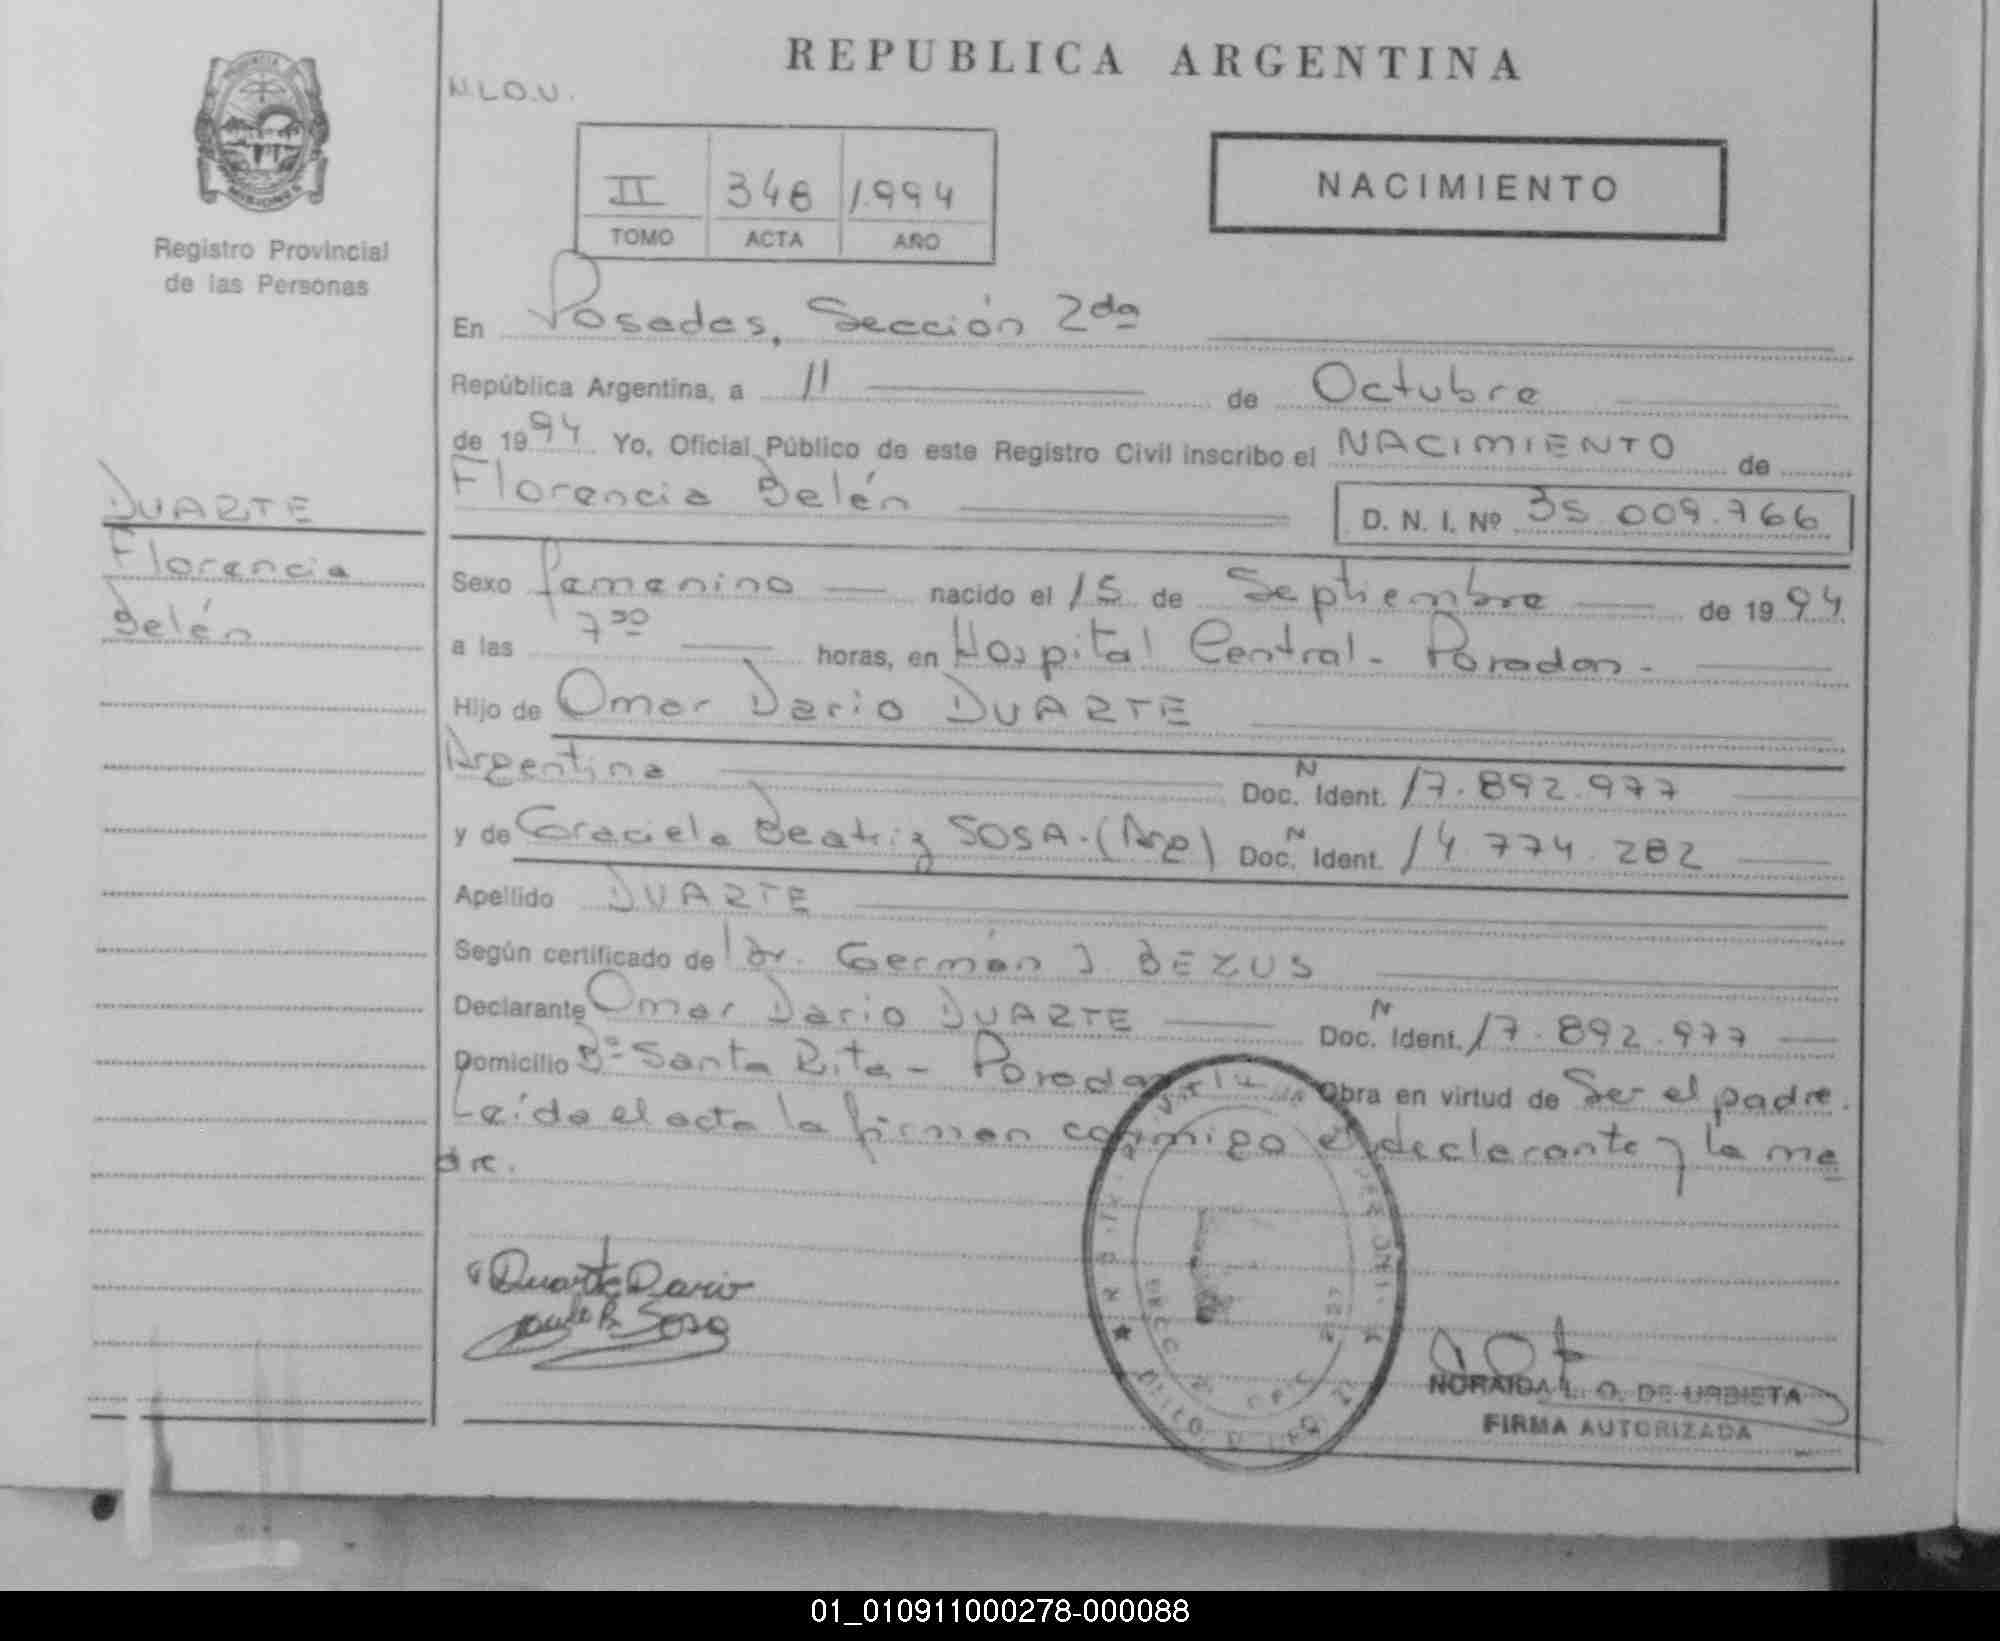 REPUBLICA ARGENTINA
N.L.O.U.
II 348 1.994
TOMO ACTA AÑO
NACIMIENTO
Registro Provincial
de las Personas
DUARTE
Florencia
Belén
En Posadas, Sección 2da
República Argentina, a 11 de Octubre
de 1994 Yo, Oficial Público de este Registro Civil inscribo el NACIMIENTO de
Florencia Belén D. N. I. Nº 35.009.766
Sexo femenino nacido el 15 de Septiembre de 1994
a las 7 30 horas, en Hospital Central - Posadas -
Hijo de Omar Dario DUARTE
Argentina Doc. N Ident. 17.892.977
y de Graciela Beatriz SOSA. (Arg) Doc. N Ident. 14.774.282
Apellido DUARTE
Según certificado de Dr. Germán J. BEZUS
Declarante Omar Dario DUARTE Doc. N Ident. 17.892.977
Domicilio Bº Santa Rita - Posadas Obra en virtud de Ser el padre.
Leída el acta la firman conmigo el declarante y la ma
dre.
Duarte Dario
Sosa
NORAIDA L. O. DE URBIETA
FIRMA AUTORIZADA
01_010911000278-000088